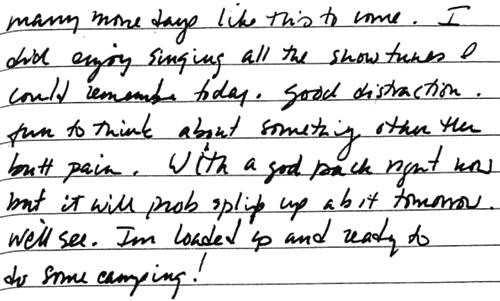 many more days like this to come. I
did enjoy singing all the showtunes I
could remember today. Good distraction.
fun to think about something other then
butt pain. With a good pack right now
but it will prob split up a bit tomorrow.
We'll see. I'm loaded up and ready to
do some camping!